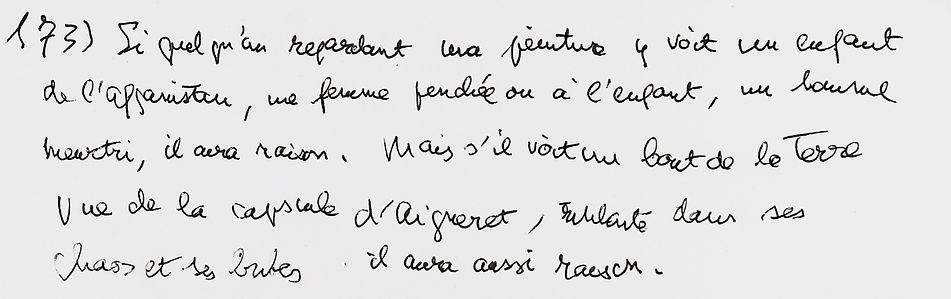 173) Si quelqu'un regardant ma peinture y voit un enfant
de l'Afganistan, une femme penchée ou à l'enfant, un homme
meurtri, il aura raison. Mais s'il voit un bout de la Terre
Vue de la capsule d'Aigneret, dans ses
chaos et ses il aura aussi raison.